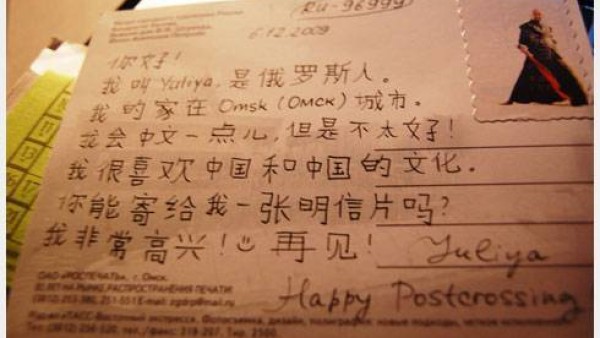 RU-96999
6.12.2009
你好!
我叫 Yuliya, 是俄罗斯人。
我的家在 Omsk (ОМСК) 城市。
我会中文一点儿, 但是不太好!
我很喜欢中国和中国的文化。
你能寄给我一张明信片吗?
我非常高兴! ☺ 再见! Yuliya
Happy Postcrossing
ОАО «РОСПЕЧАТЬ», г. Омск.